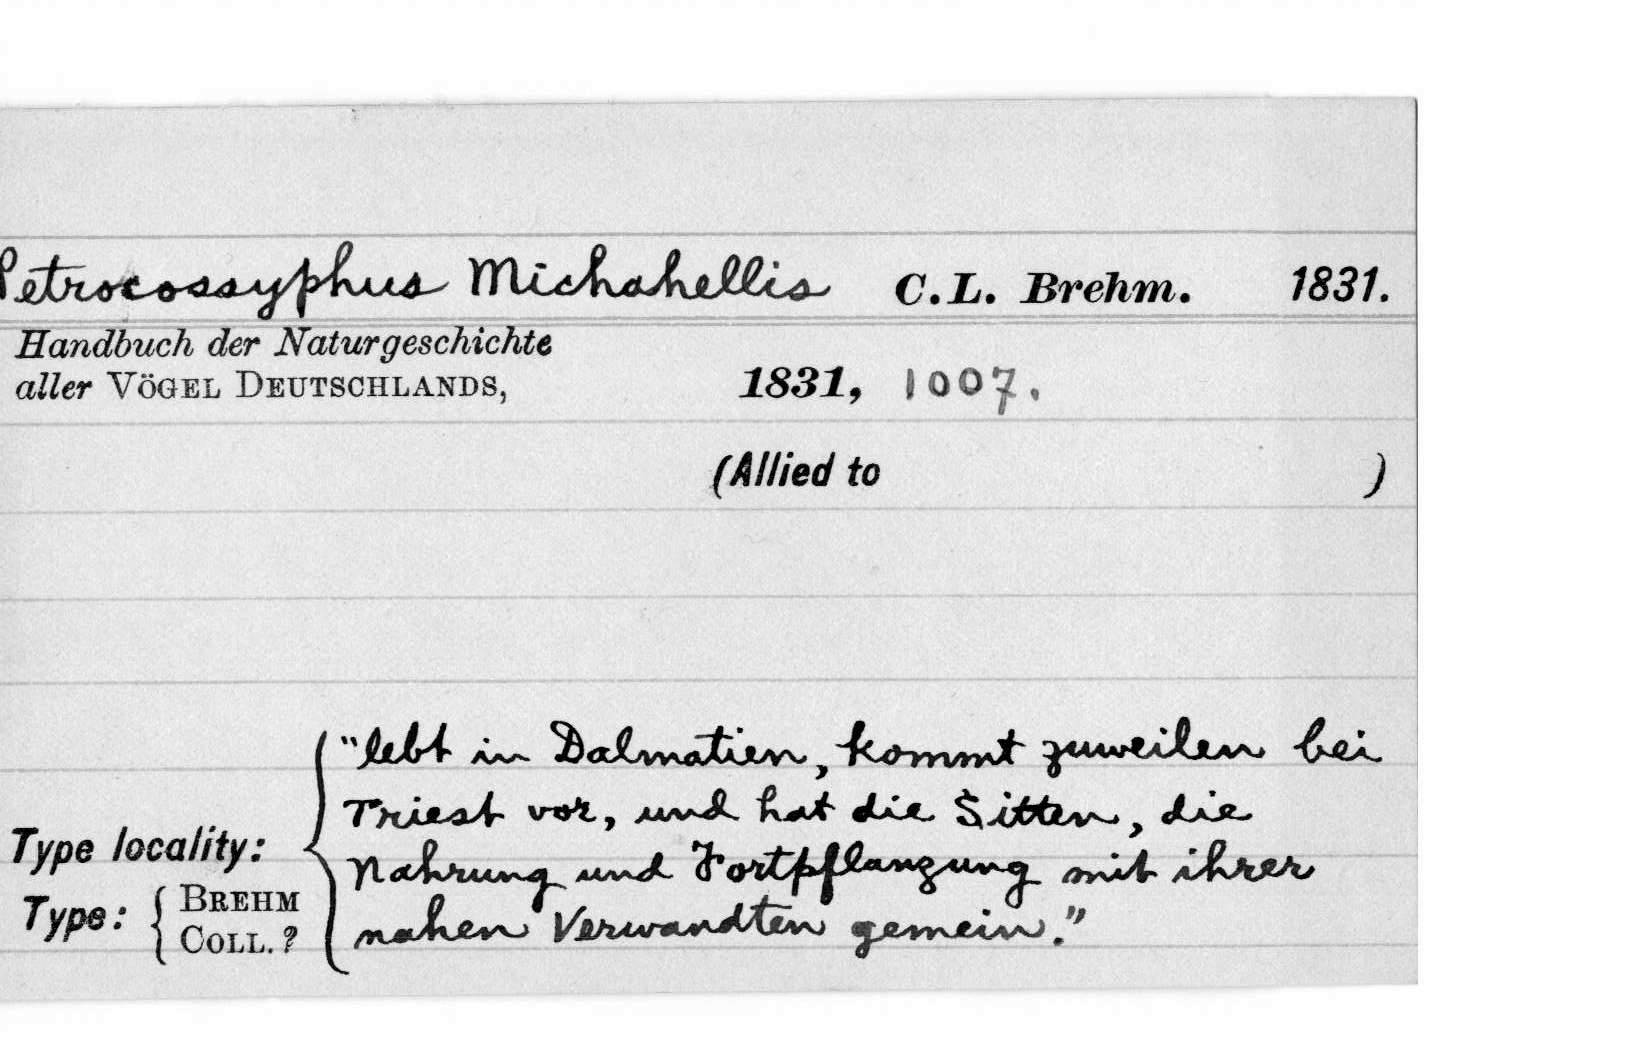 Petrocossyphus Michahellis C.L. Brehm. 1831.
Handbuch der Naturgeschichte
aller VÖGEL DEUTSCHLANDS, 1831, 1007.
(Allied to )
"lebt in Dalmatien, kommt zuweilen bei
Triest vor, und hat die Sitten, die
Type locality: Nahrung und Fortpflanzung mit ihrer
Type: { BREHM COLL. ? nahen Verwandten gemein."